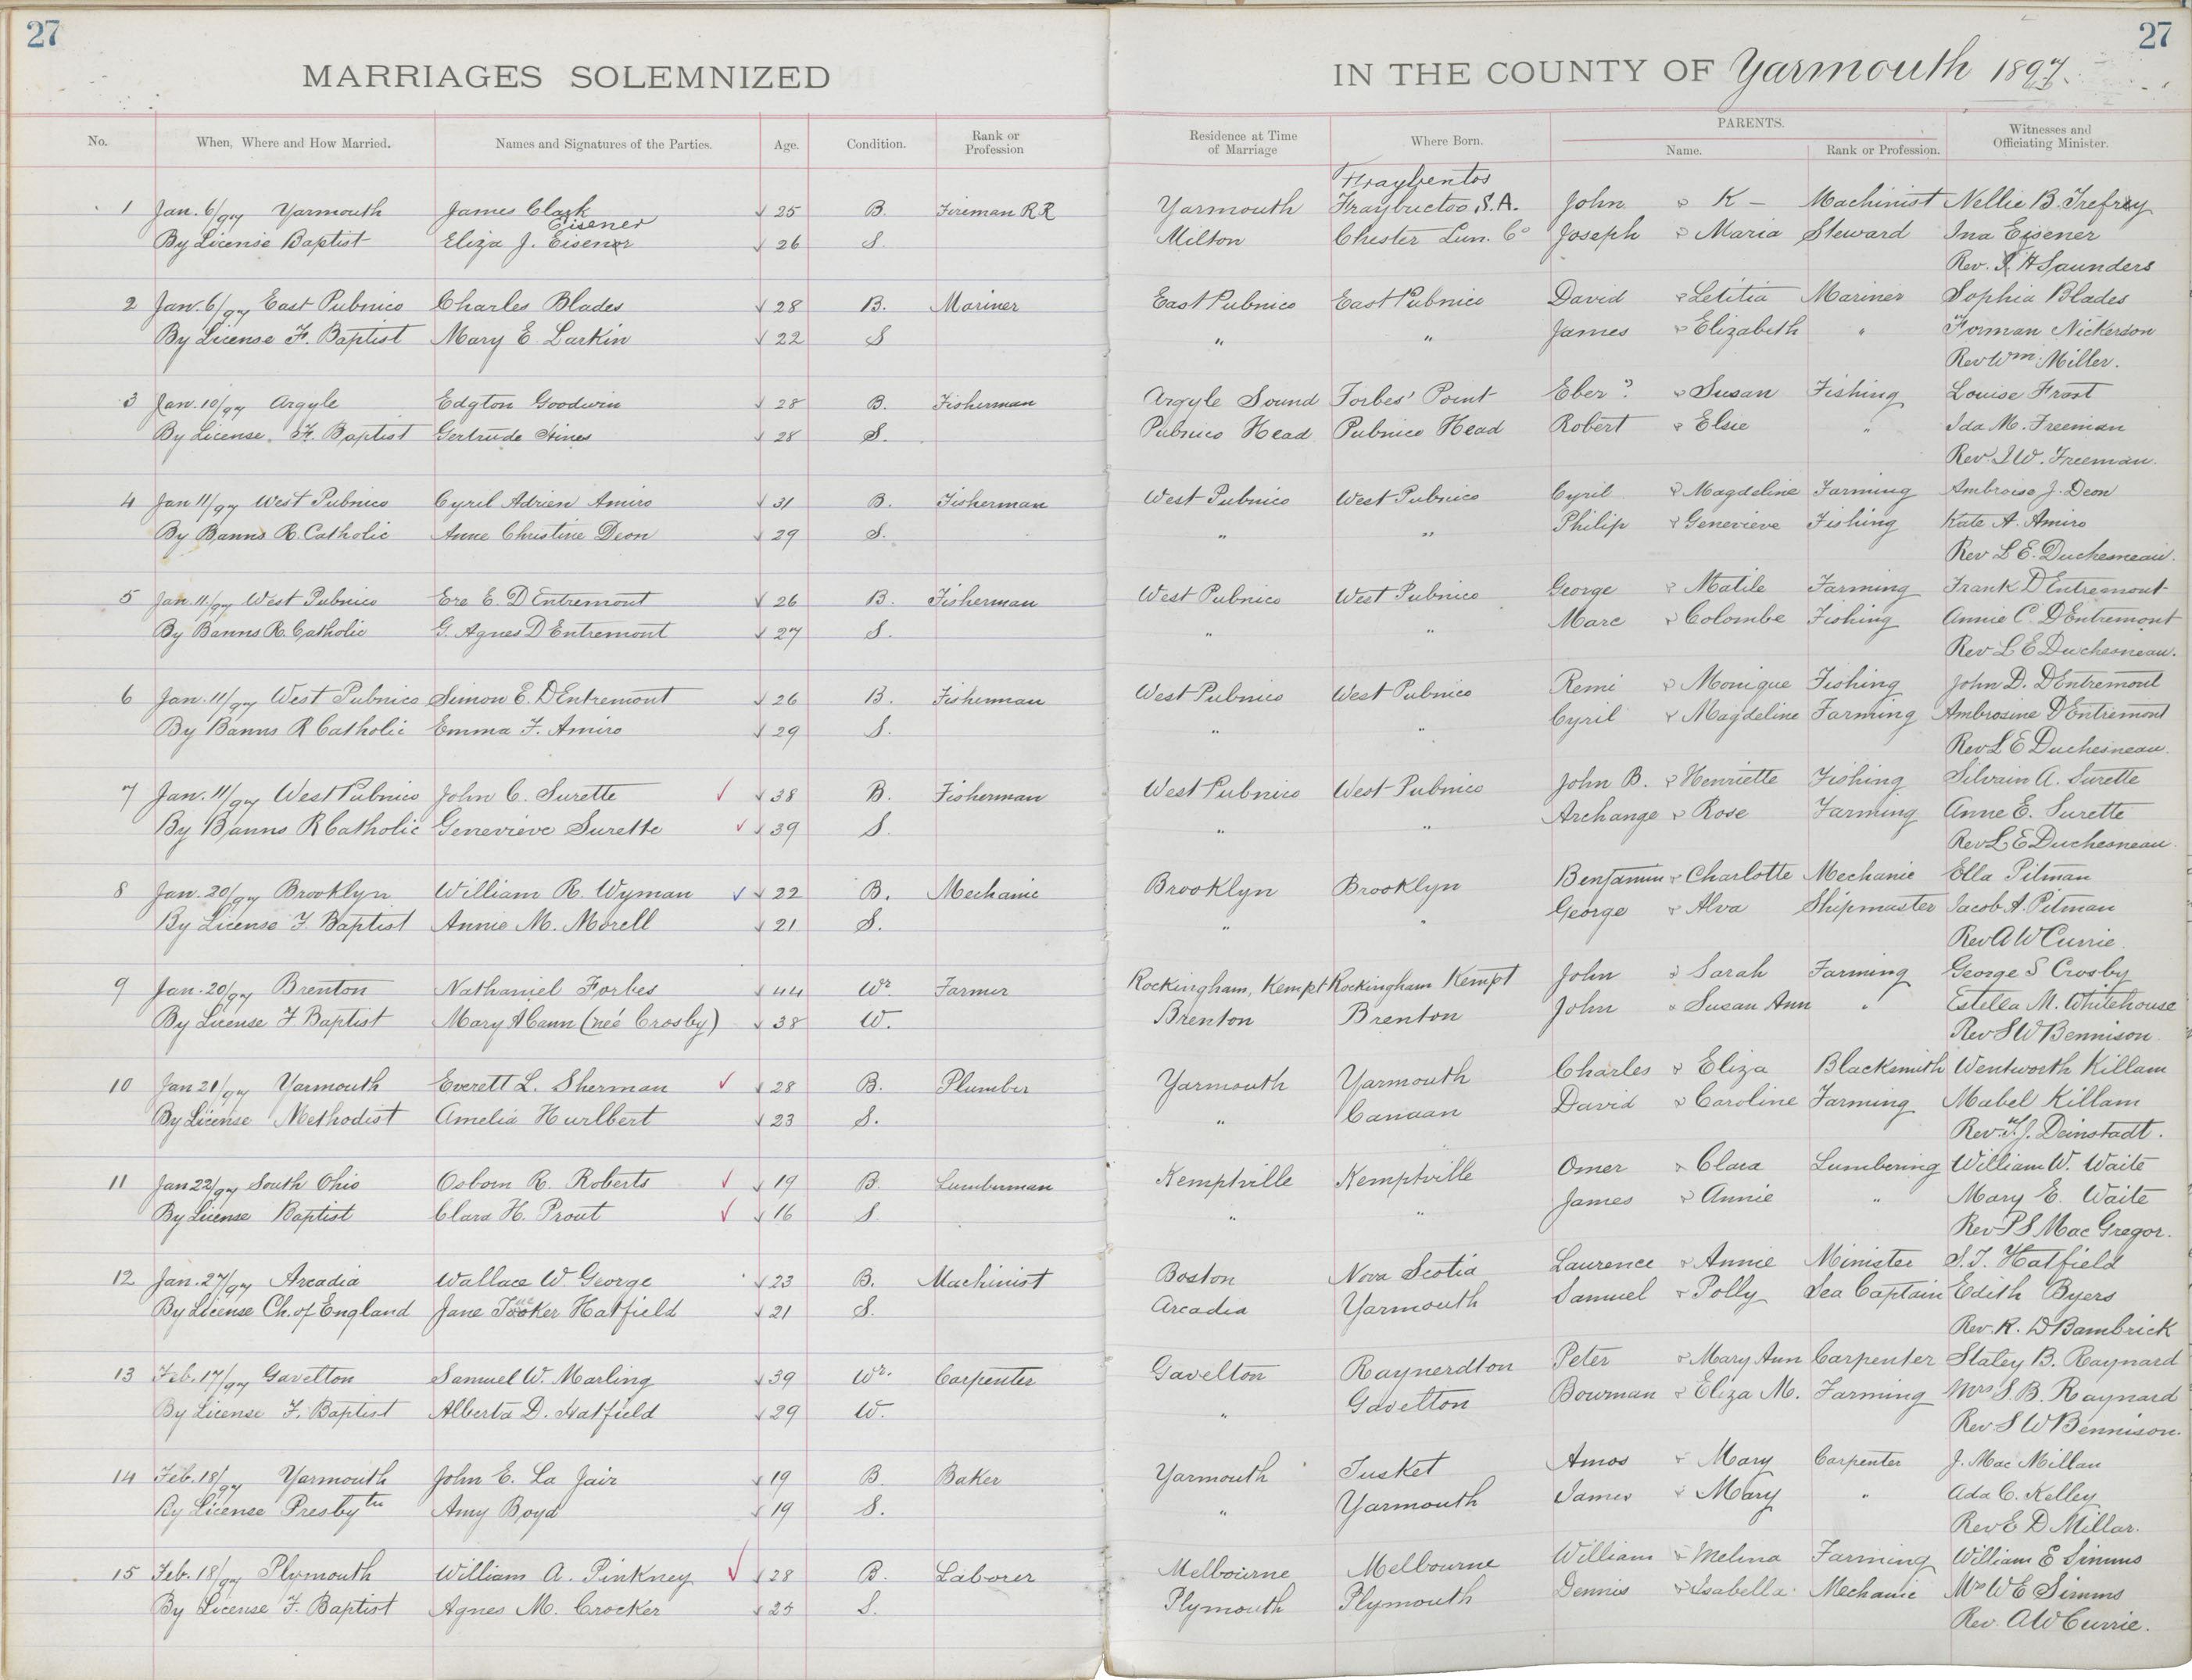 27
27
MARRIAGES SOLEMNIZED IN THE COUNTY OF Yarmouth 1897.
No. When, Where and How Married. Names and Signatures of the Parties. Age. Condition. Rank or Profession Residence at Time of Marriage Where Born. PARENTS. Name. Rank or Profession. Witnesses and Officiating Minister.
Fraybentos
1 Jan. 6/97 Yarmouth James Clark 25 B. Fireman R R Yarmouth Fraybuctos, S.A. John & K — Machinist Nellie B. Trefry
Eisener
By License Baptist Eliza J. Eisener 26 S. Milton Chester Lun. Co Joseph & Maria Steward Ina Eisener
Rev. J H Saunders
2 Jan. 6/97 East Pubnico Charles Blades 28 B. Mariner East Pubnico East Pubnico David & Letitia Mariner Sophia Blades
By License F. Baptist Mary E. Larkin 22 S " " James & Elizabeth " Forman Nickerson
Rev Wm. Miller.
3 Jan. 10/97 Argyle Edgton Goodwin 28 B. Fisherman Argyle Sound Forbes' Point Eber ? & Susan Fishing Louise Frost
By License. F. Baptist Gertrude Hines 28 S. Pubnico Head Pubnico Head Robert & Elsie " Ida M. Freeman
Rev. I W. Freeman.
4 Jan 11/97 West Pubnico Cyril Adrien Amiro 31 B. Fisherman West Pubnico West Pubnico Cyril & Magdeline Farming Ambroise J. Deon
By Banns R. Catholic Anne Christine Deon 29 S. " " Philip & Genevieve Fishing Kate A. Amiro
Rev L E. Duchesneau.
5 Jan. 11/97 West Pubnico Ere E. D Entremont 26 B. Fisherman West Pubnico West Pubnico George & Matile Farming Frank D Entremont
By Banns R. Catholic G. Agnes D Entremont 27 S. " " Marc & Colombe Fishing Annie C. D Entremont
Rev L E Duchesneau.
6 Jan. 11/97 West Pubnico Simon E. D Entremont 26 B. Fisherman West Pubnico West Pubnico Remi & Monique Fishing John D. D Entremont
By Banns R Catholic Emma F. Amiro 29 S. " " Cyril & Magdeline Farming Ambrosine D Entremont
Rev L E Duchesneau.
7 Jan. 11/97 West Pubnico John C. Surette 38 B. Fisherman West Pubnico West Pubnico John B. & Henriette Fishing Silvain A. Surette
By Banns R Catholic Genevieve Surette 39 S. " " Archange & Rose Farming Anne E. Surette
Rev L E Duchesneau.
8 Jan. 20/97 Brooklyn William R. Wyman 22 B. Mechanic Brooklyn Brooklyn Benjamin & Charlotte Mechanic Ella Pitman
By License F. Baptist Annie M. Morell 21 S. " " George & Alva Shipmaster Jacob A. Pitman
Rev A W Currie.
9 Jan. 20/97 Brenton Nathaniel Forbes 44 Wr. Farmer Rockingham, Kempt Rockingham Kempt John & Sarah Farming George S Crosby
By License F Baptist Mary A Cann (neé Crosby) 38 W. Brenton Brenton John & Susan Ann " Estella M. Whitehouse
Rev S W Bennison
10 Jan 21/97 Yarmouth Everett L. Sherman 28 B. Plumber Yarmouth Yarmouth Charles & Eliza Blacksmith Wentworth Killam
By License Methodist Amelia Hurlbert 23 S. " Canaan David & Caroline Farming Mabel Killam
Rev. T. J. Deinstadt.
11 Jan 22/97 South Ohio Osborn R. Roberts 19 B. Lumberman Kemptville Kemptville Omer & Clara Lumbering William W. Waite
By License Baptist Clara H. Prout 16 S. " " James & Annie " Mary E. Waite
Rev P S Mac Gregor.
12 Jan. 27/97 Arcadia Wallace W. George 23 B. Machinist Boston Nova Scotia Laurence & Annie Minister S. J. Hatfield
By License Ch. of England Jane Tooker Hatfield 21 S. Arcadia Yarmouth Samuel & Polly Sea Captain Edith Byers
Rev. R. D Bambrick
13 Feb. 17/97 Gavelton Samuel W. Marling 39 Wr. Carpenter Gavelton Raynerdton Peter & Mary Ann Carpenter Staley B. Raynard
By License F. Baptist Alberta D. Hatfield 29 W. " Gavelton Bowman & Eliza M. Farming Mrs S. B. Raynard
Rev S W Bennison.
14 Feb. 18/97 Yarmouth John E. La Fair 19 B. Baker Yarmouth Tusket Amos & Mary Carpenter J. Mac Millan
By License Presbytn Amy Boyd 19 S. " Yarmouth James & Mary " Ada C. Kelley
Rev E D Millar.
15 Feb. 18/97 Plymouth William A. Pinkney 28 B. Laborer Melbourne Melbourne William & Melina Farming William E Simms
By License F. Baptist Agnes M. Crocker 25 S. Plymouth Plymouth Dennis & Isabella Mechanic Mrs W E Simms
Rev. A W Currie.